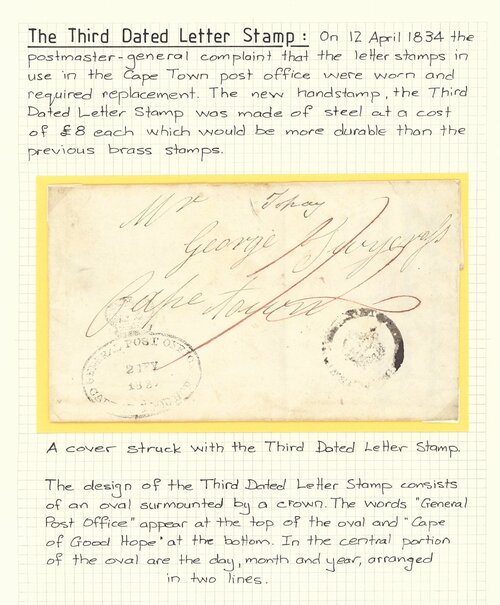 The Third Dated Letter Stamp: On 12 April 1834 the
postmaster-general complaint that the letter stamps in
use in the Cape Town post office were worn and
required replacement. The new handstamp, the Third
Dated Letter Stamp was made of steel at a cost
of £8 each which would be more durable than the
previous brass stamps.
Mr
George
Cape Town
GENERAL POST OFFICE
A cover struck with the Third Dated Letter Stamp.
The design of the Third Dated Letter Stamp consists
of an oval surmounted by a crown. The words "General
Post Office" appear at the top of the oval and "Cape
of Good Hope" at the bottom. In the central portion
of the oval are the day, month and year, arranged
in two lines.